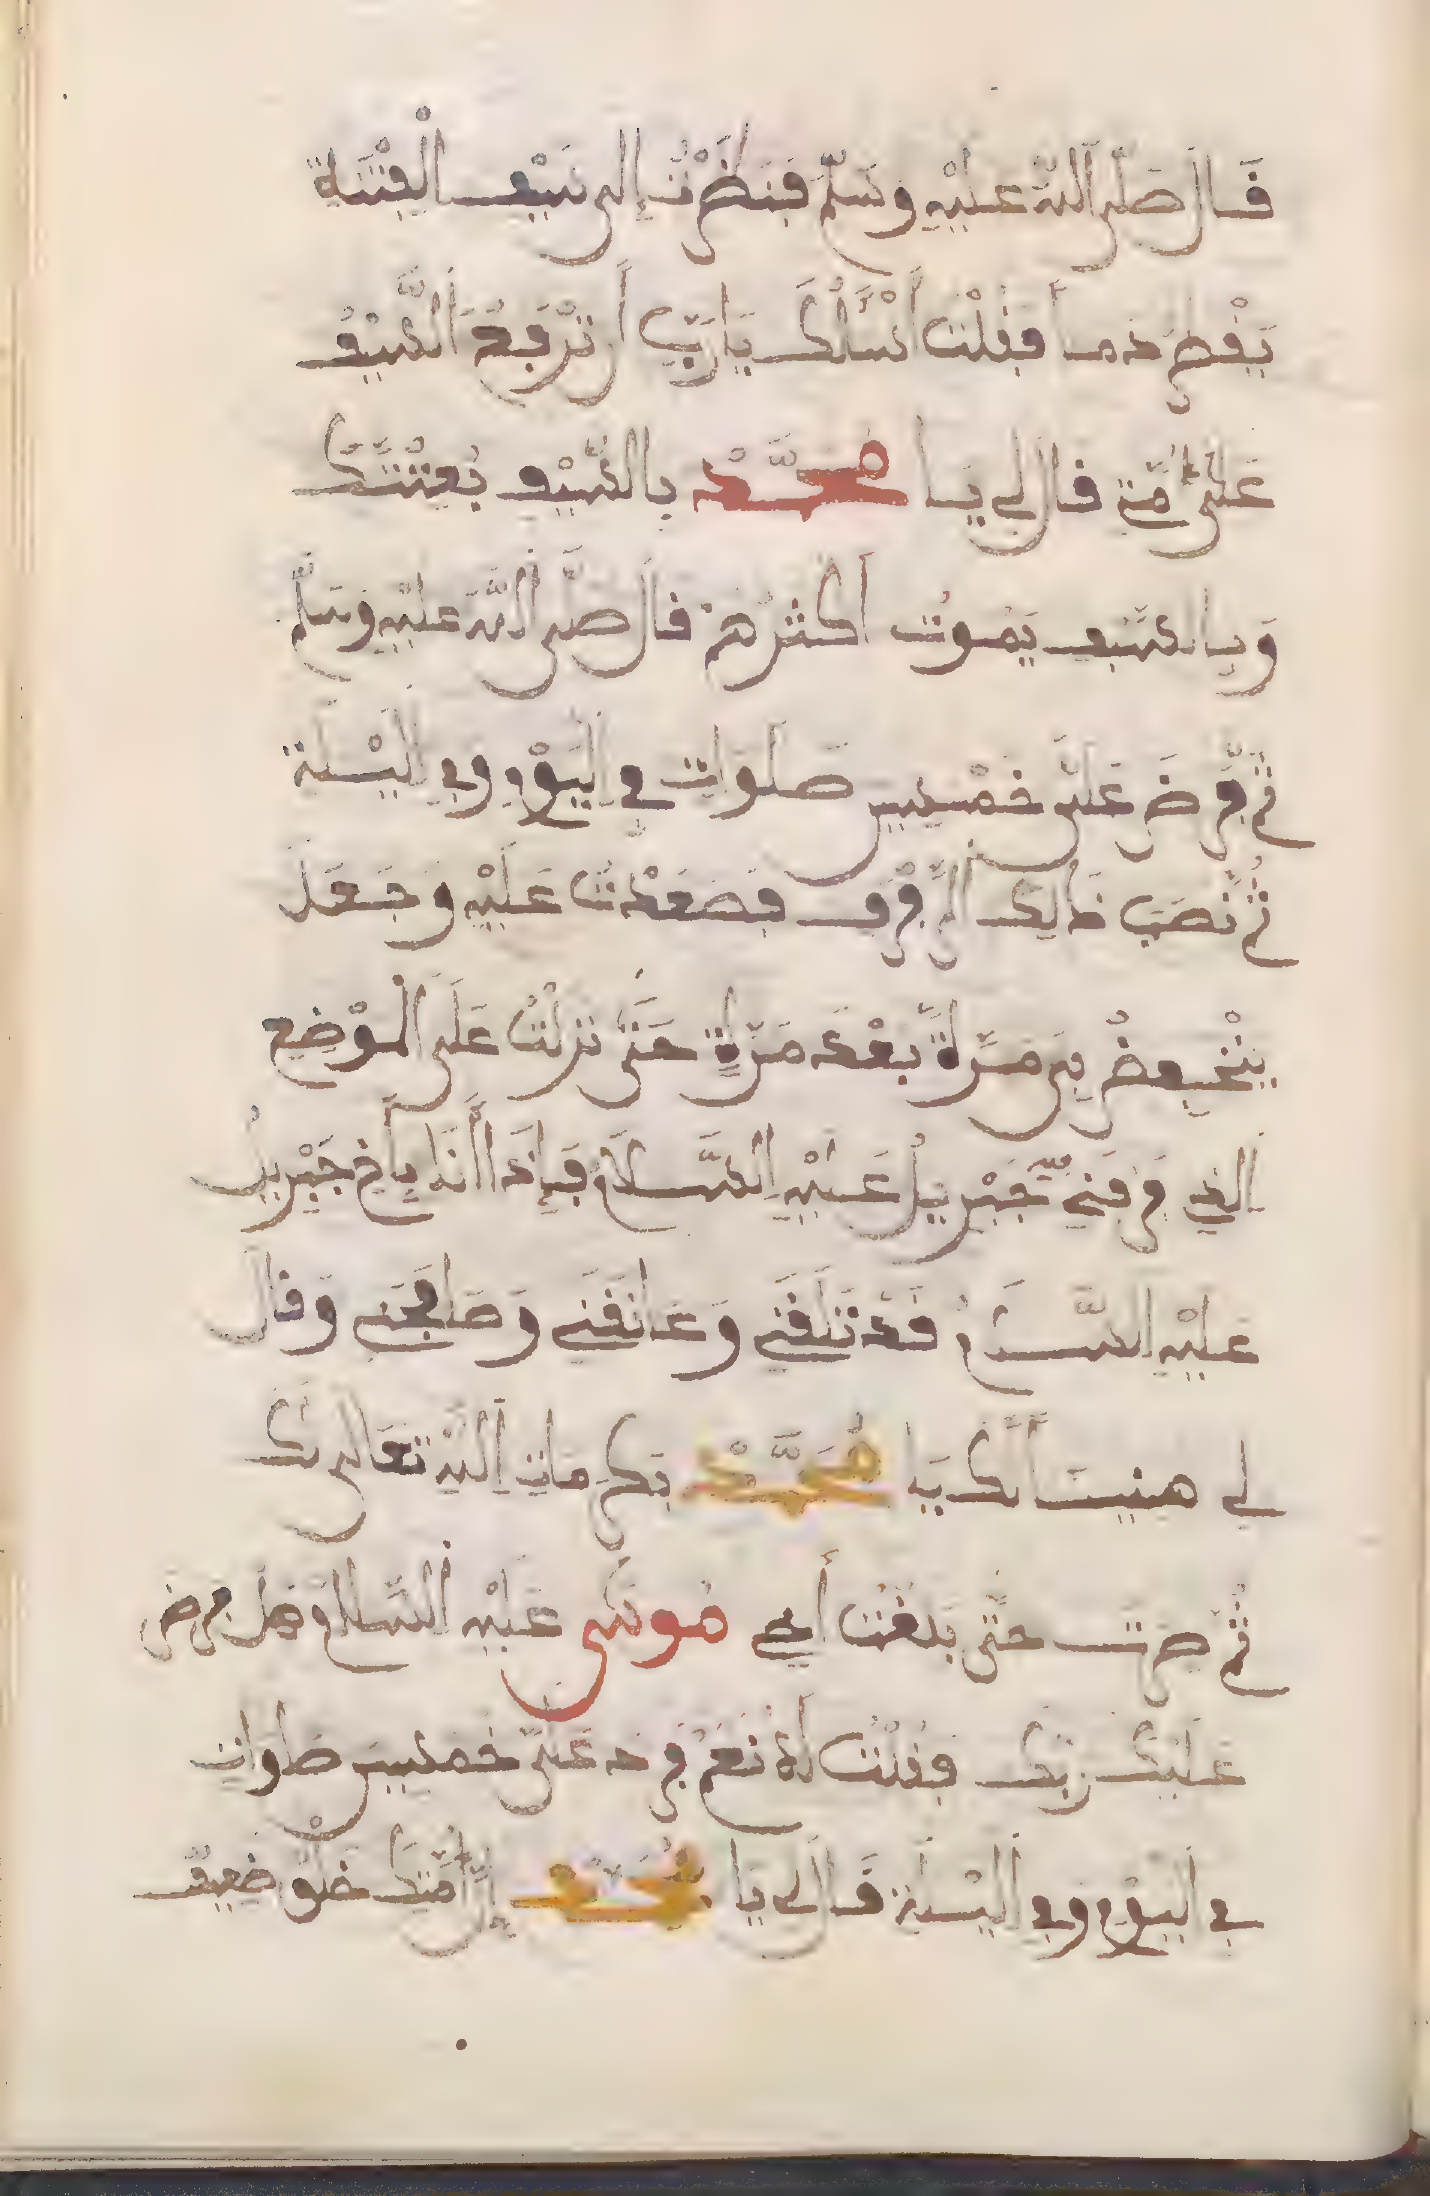 قَالَ صَلَّى اللَّهُ عَلَيْهِ وَسَلَّمَ فَنَظَرْتُ إِلَى سَيْفِ الْفِتْنَةِ
يَقْطُرُ دماً فَقُلْتُ أَسْأَلُكَ يَا رَبِّ أَن تَرْفَعَ السَّيْفَ
عَلَى أُمَّتِي قَالَ لِي يَا مُحَمَّدْ بِالسَّيْفِ بُعِثْتَ
وَبِالسَّيْفِ يَمُوتُ أَكْثَرُهُمْ قَالَ صَلَّى اللَّهُ عَلَيْهِ وَسَلَّمَ
ثُمَّ فَرَضَ عَلَيَّ خَمْسِينَ صَلَوَاتٍ فِي الْيَوْمِ وَفِي اللَّيْلَةِ
ثُمَّ نَصَبَ ذَالِكَ الرَّفْرَف فَصَعَدْتُ عَلَيْهِ وَجَعَلَ
يَنْخَفِضُ بِي مَرَّةً بَعْدَ مَرَّةٍ حَتَّى نَزَلْتُ عَلَى الْمَوْضِعِ
الذِي فَرَقَنِي جِبْرِيلُ عَلَيْهِ السَّلَامُ فَإِذَا أَنَا بِأَخِي جِبْرِيلُ
عَلَيْهِ السَّلَامُ قَدْ تَلَقَّنِي وَعَانَقَنِي وَصَافَحَنِي وَقَالَ
لِي هنيئاً لَكَ يَا مُحَمَّدْ بِكَرَمَاتِ اللَّهِ تَعَالَى لَكَ
ثُمَّ صرت حَتَّى بَلَغْتُ أَخِي مُوسَى عَلَيْهِ السَّلَامُ وَهَلْ فَرَضَ
عَلَيْكَ رَبُّكَ فَقُلْتُ لَهُ نَعَمْ فرض عَلَيَّ خَمْسِينَ صَلَوَاتٍ
فِي الْيَوْمِ وَفِي اللَّيْلَةِ قَالَ لِي يَا مُحَمَّدْ إِنَّ أُمَّتَكَ خَلْقٌ ضَعِيفٌ